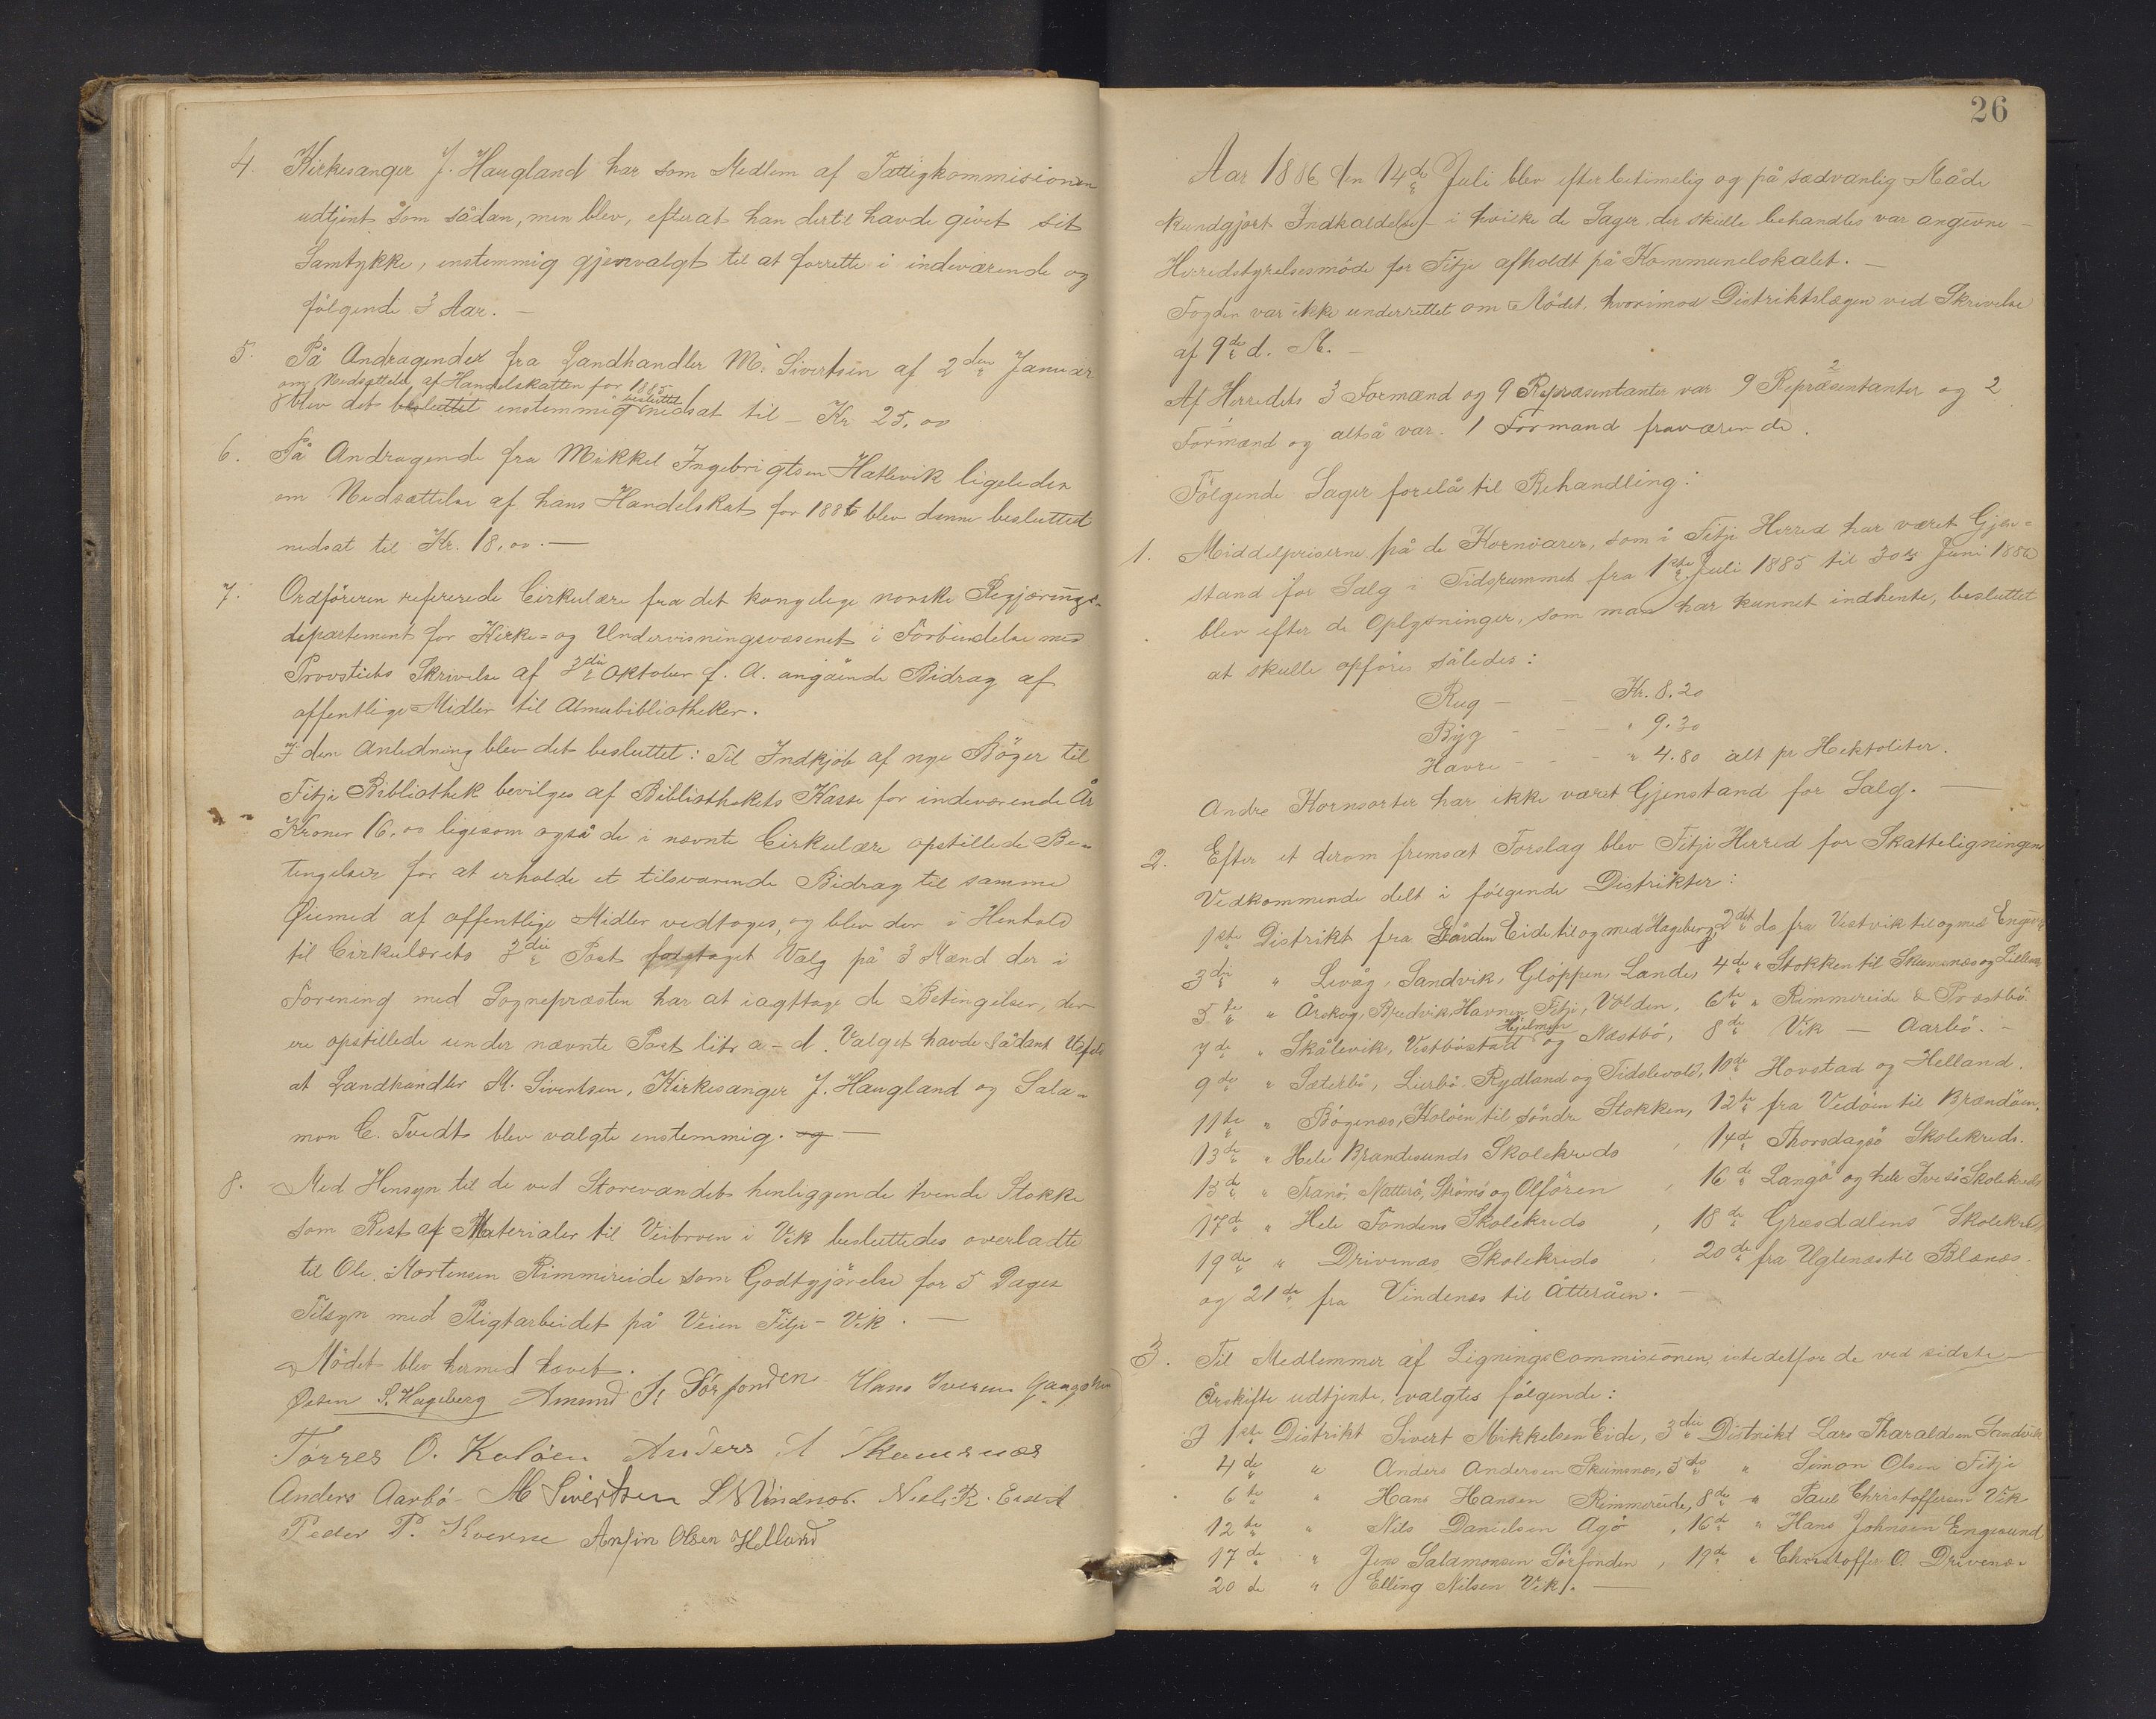 4. Kirkesanger J. Haugland har som Medlem af Fattigkommisionen
udtjent som sådan, men blev, efterat han dertil havde givet sit
Samtykke, enstemmig gjenvalgt til at forrette i indeværende og
følgende 3 Aar. —
5. På Andragender fra Landhandler M. Sivertsen af 2den Januar
om Nedsættelse af Handelskatten for 1885
blev det besluttet enstemmig besluttet nedsat til – Kr 25,00
6. På Andragende fra Mikkel Ingebrigtsen Hatlevik ligeledes
om Nedsættelse af hans Handelskat for 1886 blev denne besluttet
nedsat til Kr. 18,00. —
7. Ordføreren refererede Cirkulære fra det kongelige norske Regjerings-
departement for Kirke- og Undervisningsvæsenet i Forbindelse med
Provstiets Skrivelse af 3die Oktober f. A. angående Bidrag af
offentlige Midler til Almubibliotheker.
I den Anledning blev det besluttet: Til Indkjøb af nye Bøger til
Fitje Bibliothek bevilges af Bibliothekets Kasse for indeværende År
Kroner 16,00 ligesom også de i nævnte Cirkulære opstillede Be-
tingelser for at erholde et tilsvarende Bidrag til samme
Øiemed af offentlige Midler vedtoges, og blev der i Henhold
til Cirkulærets 3die Post foretaget Valg på 3 Mænd der i
Forening med Sognepræsten har at iagttage de Betingelser, der
ere opstillede under nævnte Post litr a – d. Valget havde sådant Udfald
at Landhandler M. Sivertsen, Kirkesanger J. Haugland og Sala-
mon C. Tvedt blev valgte enstemmig. og —
8. Med Hensyn til de ved Storevandet henliggende tvende Stokke
som Rest af Materialer til Veibroen i Vik besluttedes overladte
til Ole Mortensen Rimmereide som Godtgjørelse for 5 Dages
Tilsyn med Pligtarbeidet på Veien Fitje – Vik. —
Mødet blev hermed hævet.
Østen S. Hageberg Amund J. Sørfonden Hans Iversen
Tørres O. Koløen Anders A Skumsnæs
Anders Aarbø - M Sivertsen L N Vindenes. Niels R. Eide
Peder P. Kverne Anfin Olsen Helland
26
Aar 1886 den 14de Juli blev efter betimelig og på sædvanlig Måde
kundgjort Indkaldelse – i hvilke de Sager, der skulle behandles var angivne –
Herredstyrelsesmøde for Fitje afholdt på Kommunelokalet. —
Fogden var ikke underrettet om Mødet, hvorimod Distriktslægen ved Skrivelse
af 9de d. M. —
Af Herredets 3 Formænd og 9 Repræsentanter var 9 Repræsentanter og 2
Formænd og altså var 1 Formand fraværende.
Følgende Sager forelå til Behandling:
1. Middelpriserne på de Kornvarer, som i Fitje Herred har været Gjen-
stand for Salg i Tidsrummet fra 1ste Juli 1885 til 30te Juni 1886
blev efter de Oplysninger, som man har kunnet indhente, besluttet
at skulle opføres således:
Rug – – Kr. 8.20
Byg – – – " 9.30
Havre – – – " 4.80 alt pr Hektoliter.
Andre Kornsorter har ikke været Gjenstand for Salg. —
2. Efter et derom fremsat Forslag blev Fitje Herred for Skatteligningens
Vedkommende delt i følgende Distrikter:
1ste Distrikt fra Gården Eide til og med Hageberg, 2det do fra Vestvik til og med
3die " Levåg, Sandvik, Gloppen, Lande, 4de " Stokken til Skumsnæs og
5te " Årskog, Bredvik, Havnen Fitje, Volden, 6te " Rimmereide & Prestbø.
7de " Skålevik, Vestbøstatt Hjelmen og Næstbø, 8de Vik — Aarbø. –
9de " Sæterbø, Lierbø, Rydland og Tidslevold, 10de Hovstad og Helland.
11te " Bøgenæs, Koløen til søndre Stokken, 12te fra Vedøen til Brandøen,
13de " Hele Brandesunds Skolekreds , 14de Thorsdagsø Skolekreds.
15de " Tranø, Natterø, Strømø og Olføren , 16de Langø og hele Skolekreds
17de " Hele Fondens Skolekreds , 18de Græsdalens Skolekreds
19de " Drivenæs Skolekreds , 20de fra Uglenæs til Blænæs
og 21de fra Vindenæs til Åtteråen. —
3. Til Medlemmer af Ligningscommisionen istedetfor de ved sidste
Årskifte udtjente, valgtes følgende:
I 1ste Distrikt Sivert Mikkelsen Eide, 3die Distrikt Lars Tharaldsen Sandvik
4de " Anders Andersen Skumsnæs, 5te " Simon Olsen Fitje
6te " Hans Hansen Rimmereide, 8de " Paul Christoffersen Vik
12te " Nils Danielsen Agø , 16de " Hans Johnsen Engesund
17de " Jens Salamonsen Sørfonden , 19de " Christoffer O. Drivenæs
20de " Elling Nilsen Vik. —